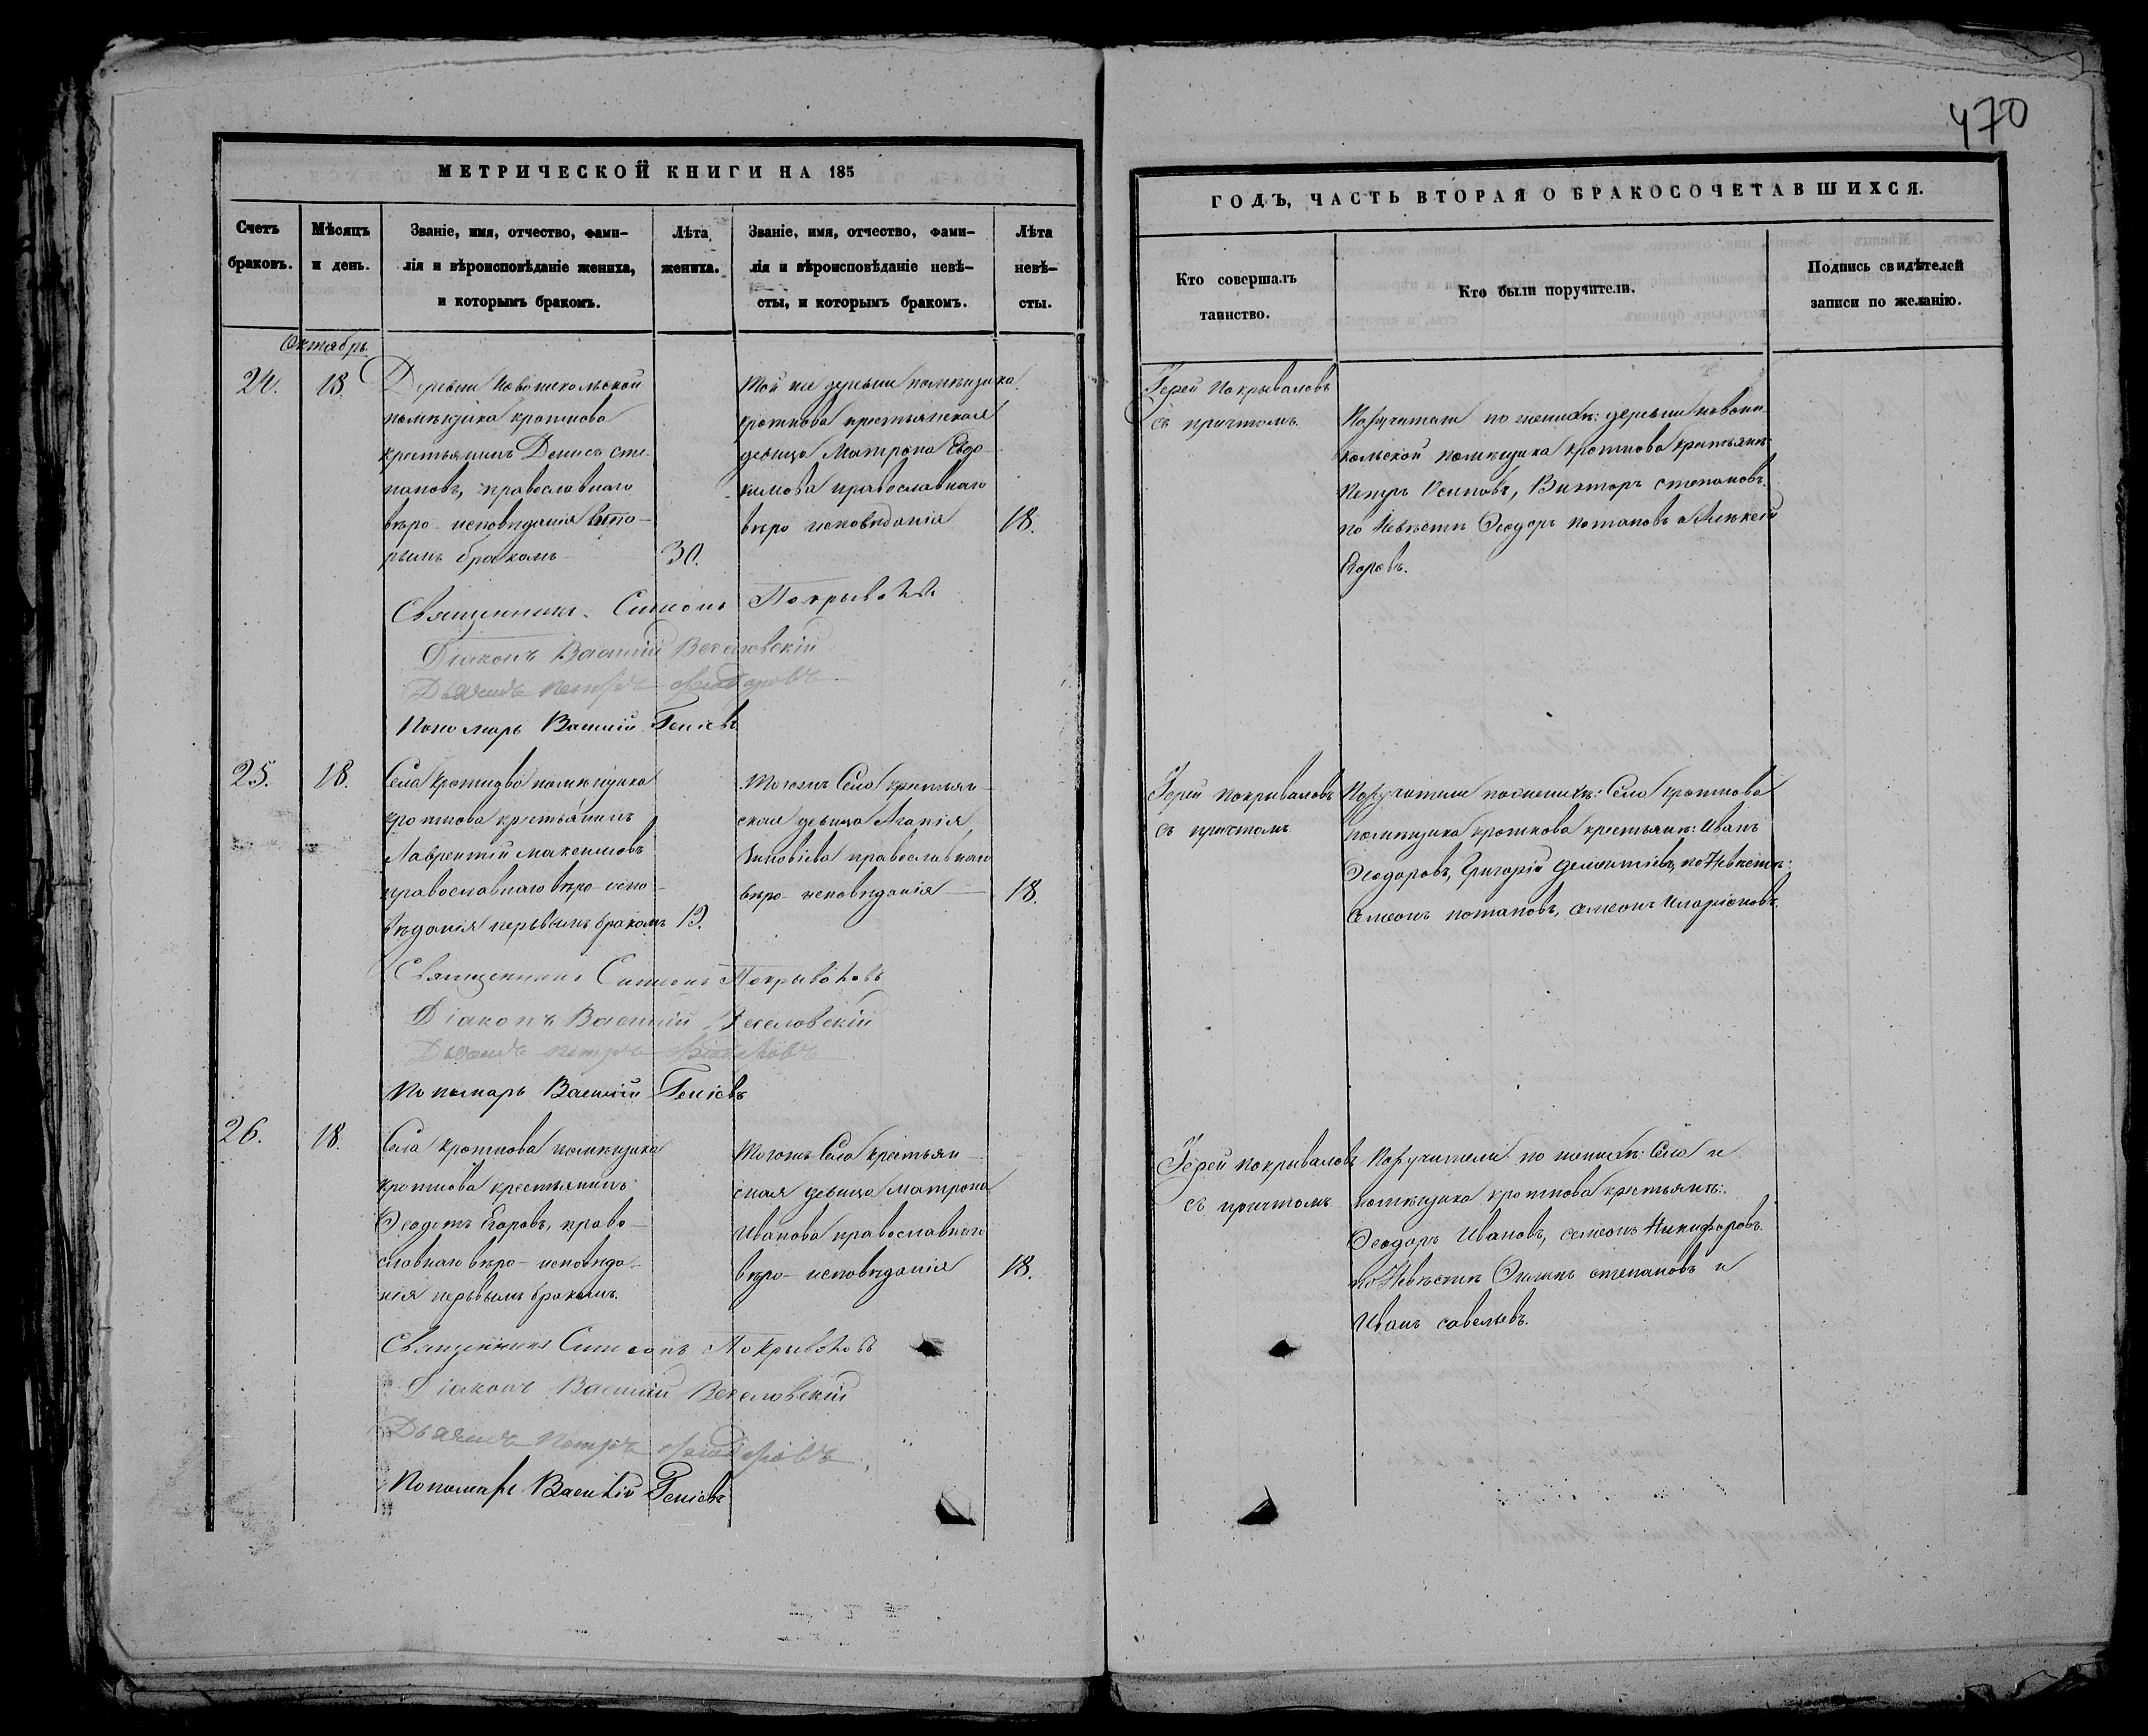 470
МЕТРИЧЕСКОЙ КНИГИ НА 185
ГОДЪ, ЧАСТЬ ВТОРАЯ О БРАКОСОЧЕТАВШИХСЯ.
Счетъ
браковъ.
Мѣсяцъ
и день.
Званіе, имя, отчество, фами-
лія и вѣроисповѣданіе жениха,
и которымъ бракомъ.
Лѣта
жениха.
Званіе, имя, отчество, фами-
лія и вѣроисповѣданіе невѣ-
сты, и которымъ бракомъ.
Лѣта
невѣ-
сты.
Кто совершалъ
таинство.
Кто были поручители.
Подпись свидѣтелей
записи по желанію.
Октябрь
24.
18.
Деревни Новоникольской
помѣщика Кроткова
крестьянинъ Денисъ Сте-
пановъ, православнаго
вѣро-исповѣданія вто-
рымъ бракомъ
30.
Той же деревни помѣщика
Кроткова крестьянская
девица Матрона Евдо-
кимова православнаго
вѣро исповѣданія
18.
Іерей Покрываловъ
съ причтомъ.
Поручители по женихѣ: деревни Новони-
кольской помѣщика Кроткова крестьянъ
Петръ Осиповъ, Викторъ Степановъ.
по Невѣстѣ Ѳеодоръ Потаповъ Алексѣй
Егоровъ.
Священникъ Симеонъ Покрываловъ
Діаконъ Василій Веселовскій
Дьячекъ Петръ
Пономарь Василій Геніевъ
25.
18.
Села Кроткова помѣщика
Кроткова крестьянинъ
Лаврентій Максимовъ
православнаго вѣро-испо-
вѣданія первымъ бракомъ
19.
Тогожъ Села крестьян-
ская девица Агапія
Зиновіева православнаго
вѣро-исповѣданія
18.
Іерей Покрываловъ
съ причтомъ
Поручители по женихѣ: Села Кроткова
помѣщика Кроткова крестьянъ: Иванъ
Ѳеодоровъ, Григорій Дементіевъ, по Невѣстѣ:
Семеонъ Потаповъ, Семеонъ Иларіоновъ.
Священникъ Симеонъ Покрываловъ
Діаконъ Василій Веселовскій
Дьячекъ Петръ
Пономарь Василій Геніевъ
26.
18.
Села Кроткова помѣщика
Кроткова крестьянинъ
Ѳеодотъ Егоровъ, право-
славнаго вѣро-исповѣда-
нія первымъ бракомъ.
Тогожъ Села крестьян-
ская девица Матрона
Иванова православнаго
вѣро-исповѣданія
18.
Іерей Покрываловъ
съ причтомъ
Поручители по женихѣ: Села и
помѣщика Кроткова крестьянъ:
Ѳеодоръ Ивановъ, Семеонъ Никифоровъ.
по Невѣстѣ Степановъ и
Иванъ Савельевъ.
Священникъ Симеонъ Покрываловъ
Діаконъ Василій Веселовскій
Дьячекъ Петръ
Пономарь Василій Геніевъ